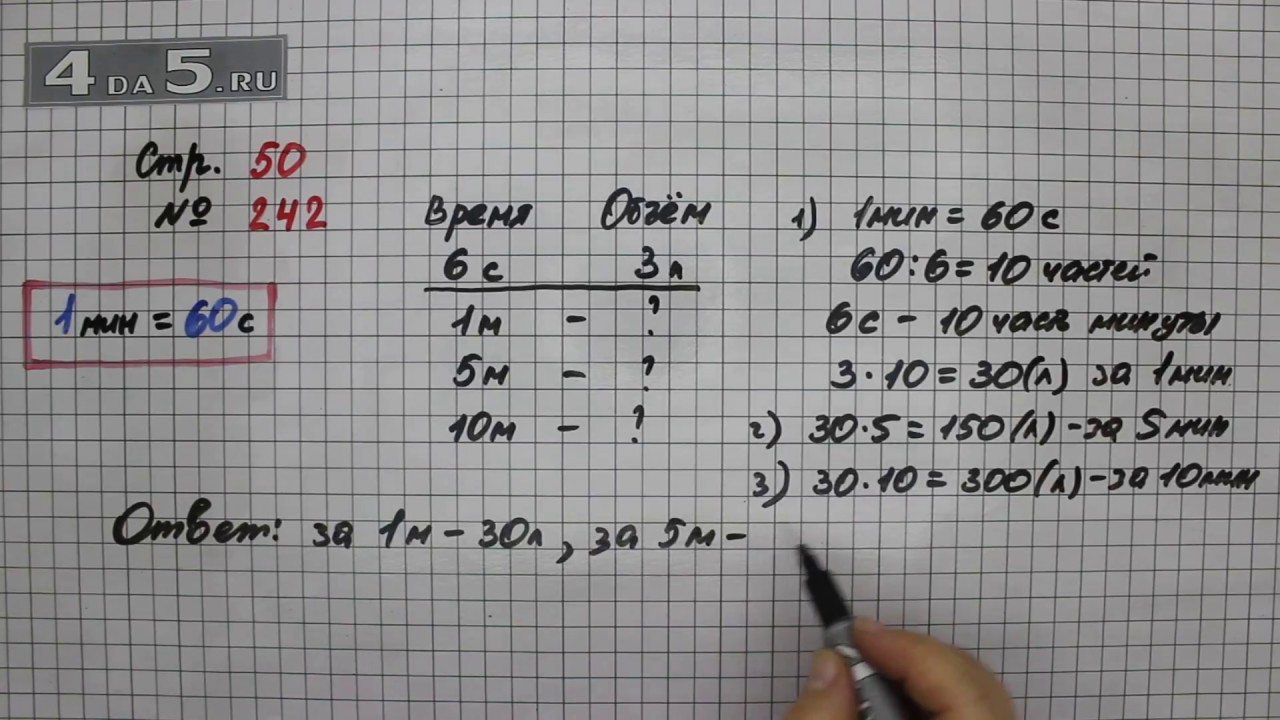 4DA5.RU
Стр. 50
№ 242
1 мин = 60 с
Время Объём
6 с 3 л
1м - ?
5м - ?
10м - ?
1) 1мин = 60 с
60:6 = 10 частей
6с - 10 часть минуты
3·10 = 30(л) за 1мин
2) 30·5 = 150(л) - за 5мин
3) 30·10 = 300(л) - за 10мин
Ответ: за 1м - 30л, за 5м -